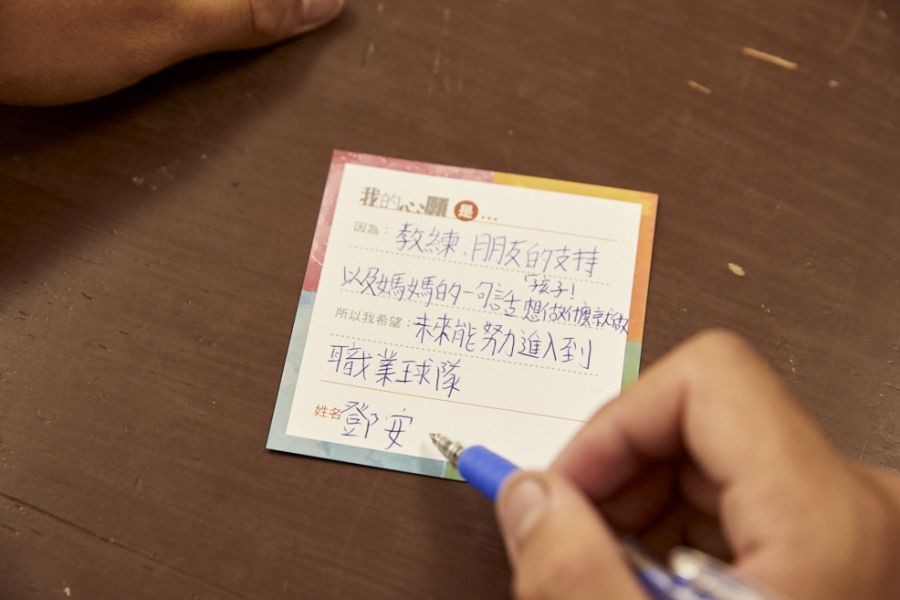 我的心願是...
因為：教練、朋友的支持
孩子！
以及媽媽的一句話想做什麼就做
所以我希望：未來能努力進入到
職業球隊
姓名鄧安